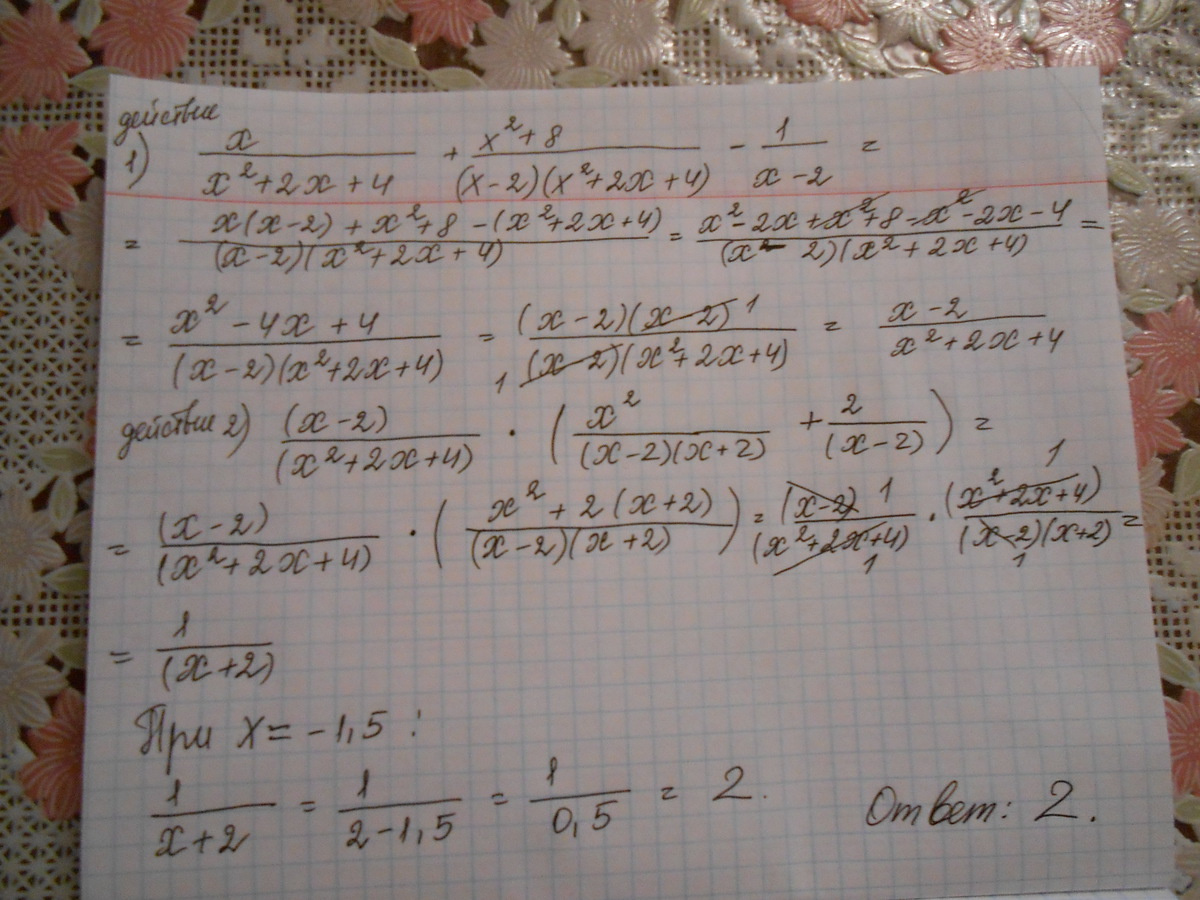 действие
1) x/(x²+2x+4) + (x²+8)/((x-2)(x²+2x+4)) - 1/(x-2) =
= (x(x-2)+x²+8-(x²+2x+4))/((x-2)(x²+2x+4)) = (x²-2x+x²+8-x²-2x-4)/((x-2)(x²+2x+4)) =
= (x²-4x+4)/((x-2)(x²+2x+4)) = ((x-2)(x-2) 1)/(1 (x-2)(x²+2x+4)) = (x-2)/(x²+2x+4)
действие 2) (x-2)/(x²+2x+4) · (x²/((x-2)(x+2)) + 2/(x-2)) =
= (x-2)/(x²+2x+4) · ((x²+2(x+2))/((x-2)(x+2))) = ((x-2) 1)/((x²+2x+4) 1) · ((x²+2x+4) 1)/((x-2)(x+2) 1) =
= 1/(x+2)
При x = -1,5 :
1/(x+2) = 1/(2-1,5) = 1/0,5 = 2.
Ответ: 2.